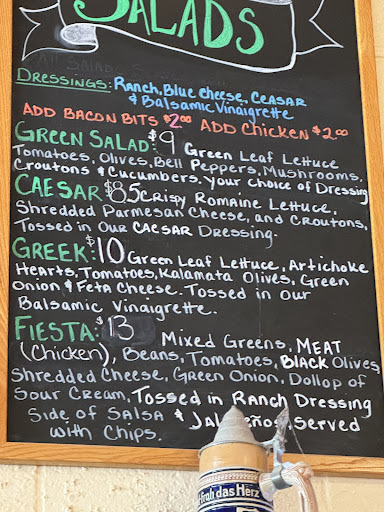 SALADS
DRESSINGS: Ranch, Blue Cheese, CEASAR
& Balsamic Vinaigrette
ADD BACON BITS $2.00 ADD CHICKEN $2.00
GREEN SALAD: $9 Green Leaf Lettuce
Tomatoes, Olives, Bell Peppers, Mushrooms,
Croutons & Cucumbers. Your Choice of Dressing
CAESAR $8.5 Crispy Romaine Lettuce,
Shredded Parmesan Cheese, and Croutons,
Tossed in Our CAESAR Dressing.
GREEK: $10 Green Leaf Lettuce, Artichoke
Hearts, Tomatoes, Kalamata Olives, Green
Onion & Feta Cheese. Tossed in Our
Balsamic Vinaigrette.
FIESTA: $13 Mixed Greens, MEAT
(Chicken), Beans, Tomatoes, BLACK Olives
Shredded Cheese, Green Onion, Dollop of
Sour Cream, Tossed in Ranch Dressing
Side of Salsa & Jalapeños, Served
with Chips.
Froh das Herz